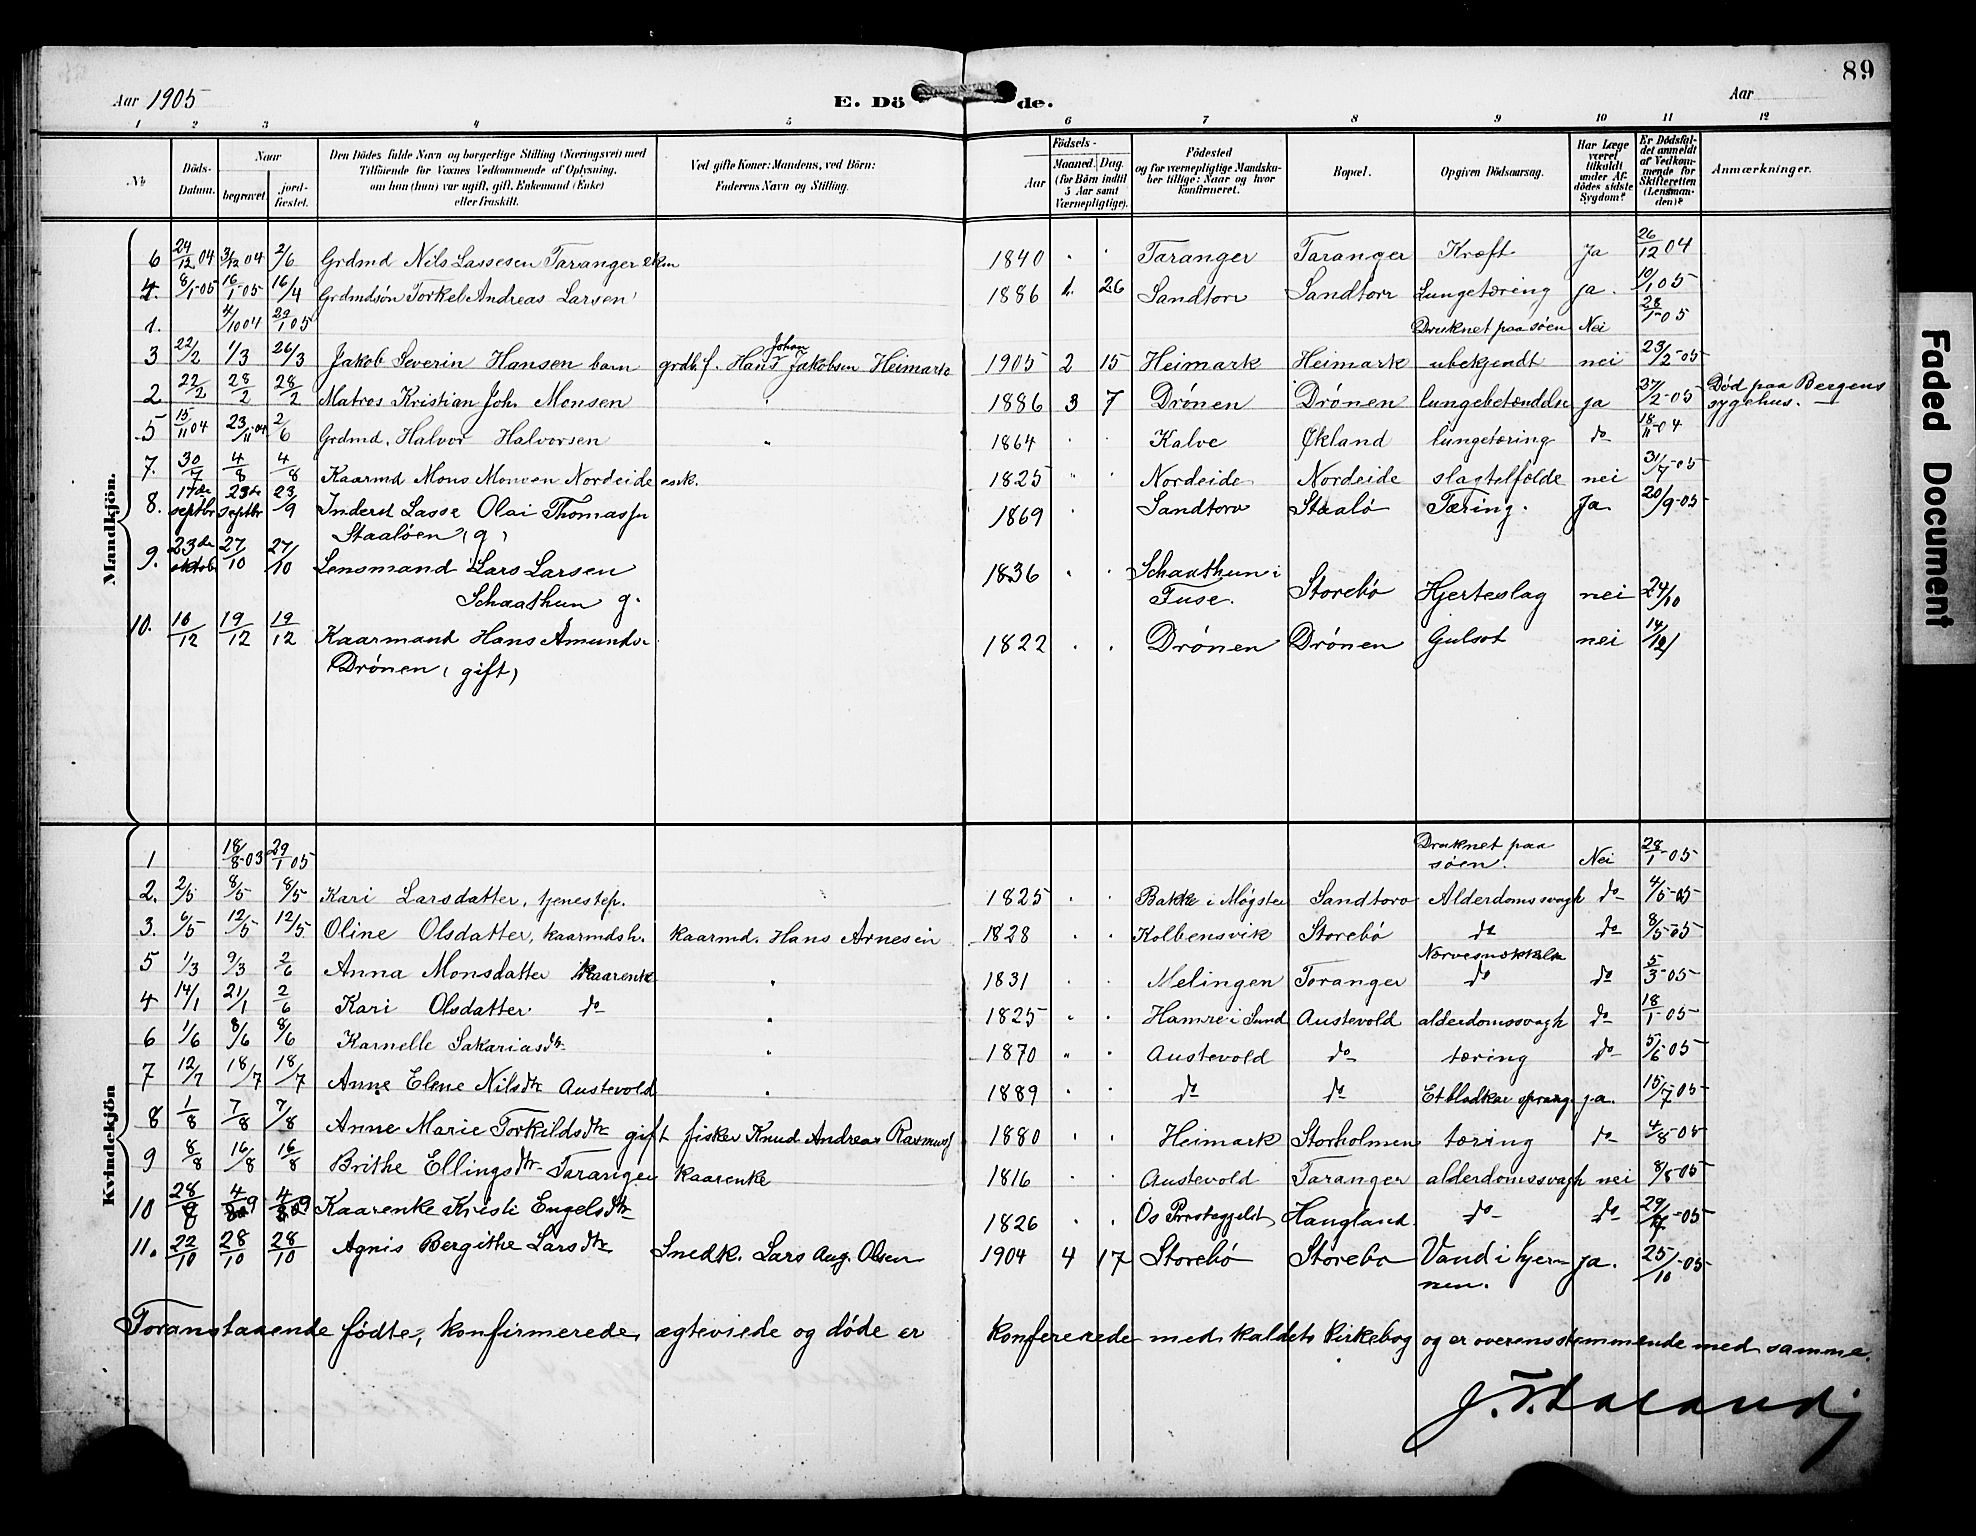 89
Aar 1905 E. Dö de. Aar
1 2 3 4 5 6 7 8 9 10 11 12
No
Döds-Datum.
Naar
begravet. jordfæstet.
Den Dödes fulde Navn og borgerlige Stilling (Næringsvei) med
Tilföiende for Voxnes Vedkommende af Oplysning,
om han (hun) var ugift, gift, Enkemand (Enke)
eller fraskilt.
Ved gifte Koner: Mandens, ved Börn:
Faderens Navn og Stilling.
Födsels-
Aar Maaned. Dag.
(for Börn indtil
5 Aar samt
Værnepligtige).
Födested
og for værnepligtige Mandskaber tillige: Naar og hvor
konfirmeret.
Bopæl.
Opgiven Dödsaarsag.
Har Læge
været
tilkaldt
under Afdödes sidste
Sygdom?
Er Dödsfaldet anmeldt
af Vedkommende for
Skifteretten
(Lensmanden)?
Anmærkninger.
Mandkjön.
6 24/12 04 3/12 04 2/6 Grdmd Nils Lassesen Taranger ekm 1840 Taranger Taranger Kræft Ja 26/12 04
4. 8/1-05 16/1-05 16/4 Grdmdsøn Torkel Andreas Larsen 1886 1. 26 Sandtorv Sandtorv Lungetæring ja. 10/1 05
1. 4/10 04 29/1 05 Druknet paa søen Nei 28/1-05
3 22/2 1/3 26/3 Jakob Severin Hansen barn grdb.f. Hans Johan Jakobsen Heimark 1905 2 15 Heimark Heimark ubekjendt nei 23/2-05
2 22/2 28/2 28/2 Matros Kristian Joh Monsen 1886 3 7 Drönen Drönen lungebetændelse ja 27/2-05 Död paa Bergens
sygehus.
5 15/11 04 23/11 04 2/6 Grdmd. Halvor Halvorsen 1864 Kalve Økland lungetæring do 18/11-04
7. 30/7 4/8 4/8 Kaarmd Mons Monsen Nordeide enk. 1825 Nordeide Nordeide slagtelfælde nei 31/7-05
8. 17de septbr 23de septbr 23/9 Inderst Lasse Olai Thomassn
Staalöen (g) 1869 Sandtorv Staalö Tæring. Ja 20/9-05
9. 23de oktob 27/10 27/10 Lensmand Lars Larsen
Schaathun g. 1836 Schaathun i
Fuse. Storebö Hjerteslag nei 24/10
10. 10/12 19/12 19/12 Kaarmand Hans Amunds
Drönen (gift) 1822 Drönen Drönen Gulsot nei 14/12
Kvindekjön
1 18/8-03 29/1 05 Druknet paa
søen. Nei 28/1-05
2. 2/5 8/5 8/5 Kari Larsdatter, tjenestep. 1825 Bakke i Møgster Sandtorv Alderdomssvagh do 4/5-05
3. 6/5 12/5 12/5 Oline Olsdatter, kaarmdsh. kaarmd. Hans Arnesen 1828 Kolbensvik Storebö do do 8/5-05
5 1/3 9/3 2/6 Anna Monsdatter kaarenke 1831 Melingen Toranger do do 5/3-05
4 14/1 21/1 2/6 Kari Olsdatter do 1825 Hamre i Sund Austevold alderdomssvagh do 18/1-05
6 1/6 8/6 8/6 Karnelle Sakariasdtr 1870 Austevold do tæring do 5/6-05
7 12/7 18/7 18/7 Anne Elene Nilsdtr Austevold 1889 do do Et blodkar sprang ja. 15/7-05
8 1/8 7/8 7/8 Anne Marie Torkildsdtr gift fisker Knud Andreas Rasmuss 1880 Heimark Storholmen tæring do 4/8-05
9 8/8 16/8 16/8 Brithe Ellingsdtr Taranger kaarenke 1816 Austevold Taranger alderdomssvagh nei 8/8-05
10 28/8 4/9 4/9 Kaarenke Kristi Engelsdtr 1826 Os Prestegjeld Haugland do do 29/-05
11. 22/10 28/10 28/10 Agnis Bergithe Larsdtr Snedk. Lars Aug. Olsen 1904 4 17 Storebö Storebö Vand i hjernen. ja. 25/10-05
Foranstaaende fødte, konfirmerede, ægteviede og døde er konfererede med kaldets kirkebog og er overensstemmende med samme.
Faded Document